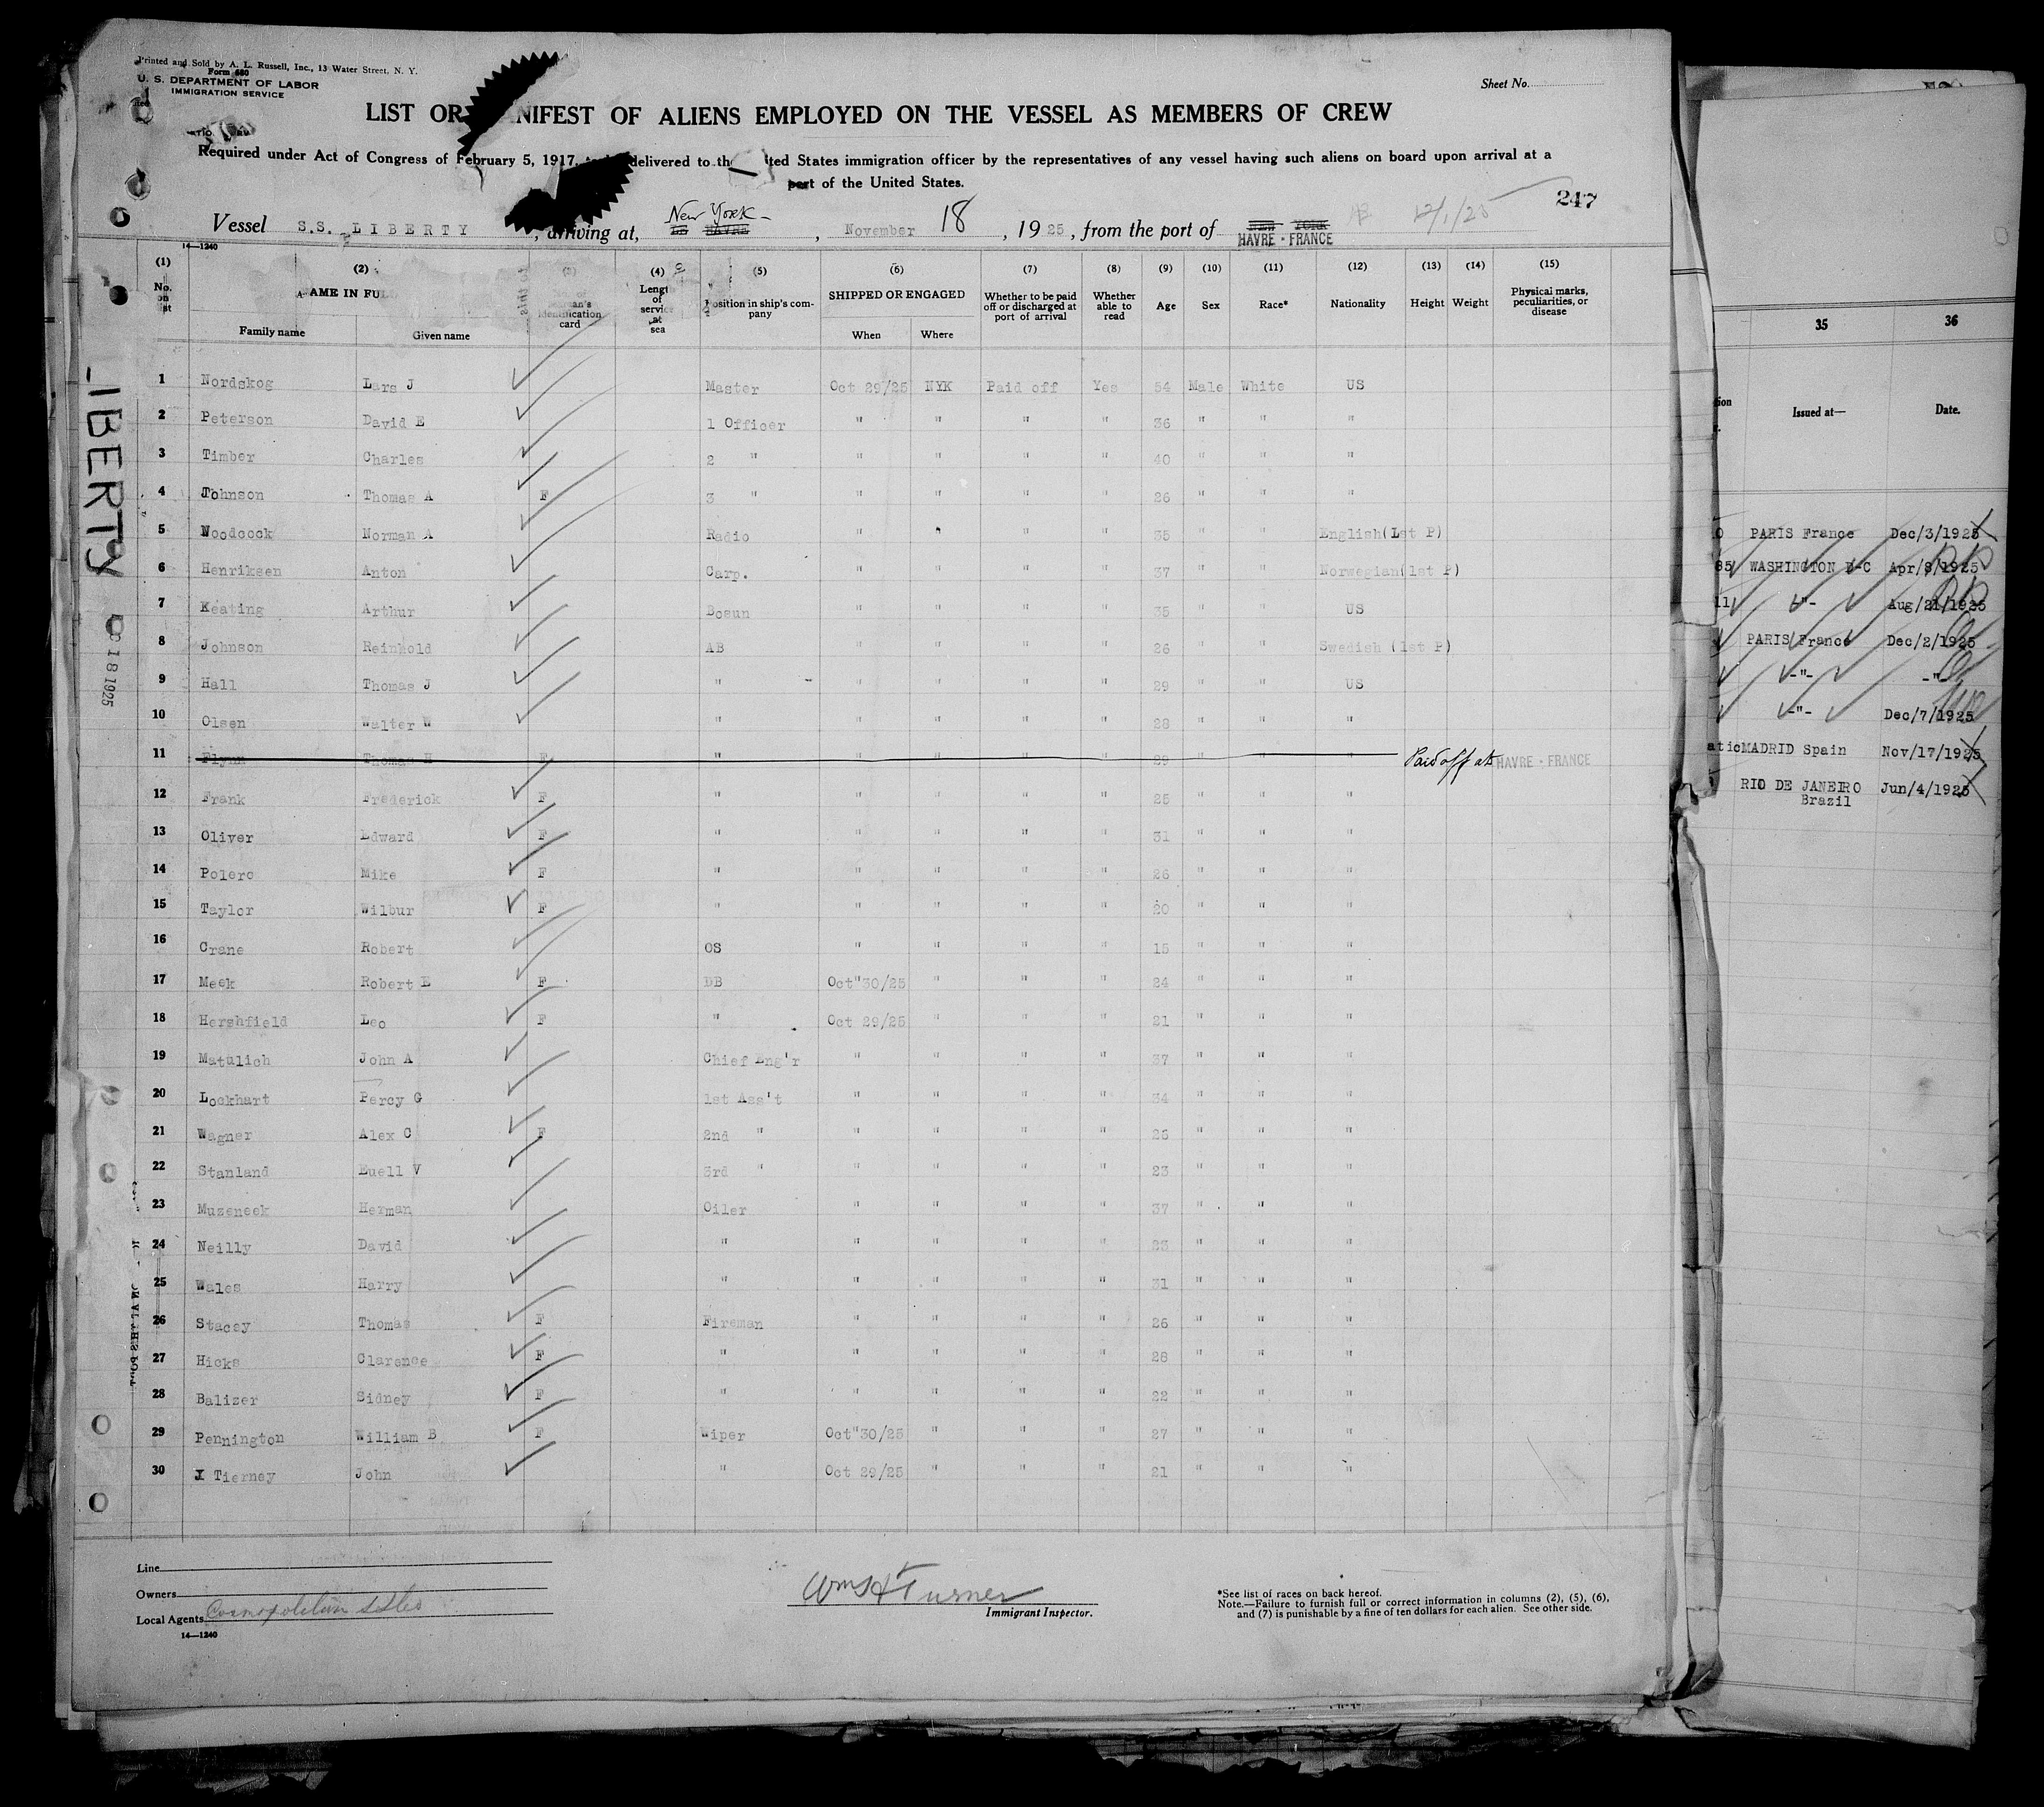 Printed and Sold by A. L. Russell, Inc., 13 Water Street, N. Y.
Form 680
U. S. DEPARTMENT OF LABOR
IMMIGRATION SERVICE
Sheet No.
LIST OR NIFEST OF ALIENS EMPLOYED ON THE VESSEL AS MEMBERS OF CREW
Required under Act of Congress of February 5, 1917, delivered to the ted States immigration officer by the representatives of any vessel having such aliens on board upon arrival at a
port of the United States.
247
Vessel S.S. LIBERTY, arriving at, New York, November 18, 1925, from the port of HAVRE - FRANCE 12/1/25
14—1240
(1) (2) (3) (4) (5) (6) (7) (8) (9) (10) (11) (12) (13) (14) (15)
No. on list
AME IN FUL
Family name Given name
identification card
Length of service at sea
Position in ship's company
SHIPPED OR ENGAGED
When Where
Whether to be paid off or discharged at port of arrival
Whether able to read
Age Sex Race* Nationality Height Weight
Physical marks, peculiarities, or disease
1 Nordskog Lars J Master Oct 29/25 NYK Paid off Yes 54 Male White US
2 Peterson David E 1 Officer " " " " 36 " " "
3 Timber Charles 2 " " " " " 40 " " "
4 Johnson Thomas A F 3 " " " " " 26 " " "
5 Woodcock Norman A Radio " " " " 35 " " English(1st P)
6 Henriksen Anton Carp. " " " " 37 " " Norwegian(1st P)
7 Keating Arthur Bosun " " " " 35 " " US
8 Johnson Reinhold AB " " " " 26 " " Swedish (1st P)
9 Hall Thomas J " " " " " 29 " " US
10 Olsen Walter W " " " " " 28 " " "
11 Flynn Thomas H F " " " " " 29 " " " Paid off at HAVRE - FRANCE
12 Frank Frederick F " " " " " 25 " " "
13 Oliver Edward F " " " " " 31 " " "
14 Polero Mike F " " " " " 26 " " "
15 Taylor Wilbur F " " " " " 20 " " "
16 Crane Robert OS " " " " 15 " " "
17 Meek Robert E F DB Oct"30/25 " " " 24 " " "
18 Hershfield Leo F " Oct 29/25 " " " 21 " " "
19 Matulich John A Chief Eng'r " " " " 37 " " "
20 Lockhart Percy G 1st Ass't " " " " 34 " " "
21 Wagner Alex C F 2nd " " " " " 26 " " "
22 Stanland Euell V 3rd " " " " " 23 " " "
23 Muzeneek Herman Oiler " " " " 37 " " "
24 Neilly David " " " " " 23 " " "
25 Wales Harry " " " " " 31 " " "
26 Stacey Thomas F Fireman " " " " 26 " " "
27 Hicks Clarence F " " " " " 28 " " "
28 Balizer Sidney F " " " " " 22 " " "
29 Pennington William B F Wiper Oct"30/25 " " " 27 " " "
30 Tierney John " Oct 29/25 " " " 21 " " "
Line
Owners
Local Agents Cosmopolitan
14—1240
Wm H Turner
Immigrant Inspector.
*See list of races on back hereof.
Note.—Failure to furnish full or correct information in columns (2), (5), (6),
and (7) is punishable by a fine of ten dollars for each alien. See other side.
LIBERTY
18 1925
35 36
Issued at— Date.
PARIS France Dec/3/1925
85 WASHINGTON D-C Apr/8/1925
11 -"- Aug/21/1925
PARIS France Dec/2/1925
-"- -"-
-"- Dec/7/1925
MADRID Spain Nov/17/1925
RIO DE JANEIRO Jun/4/1925
Brazil